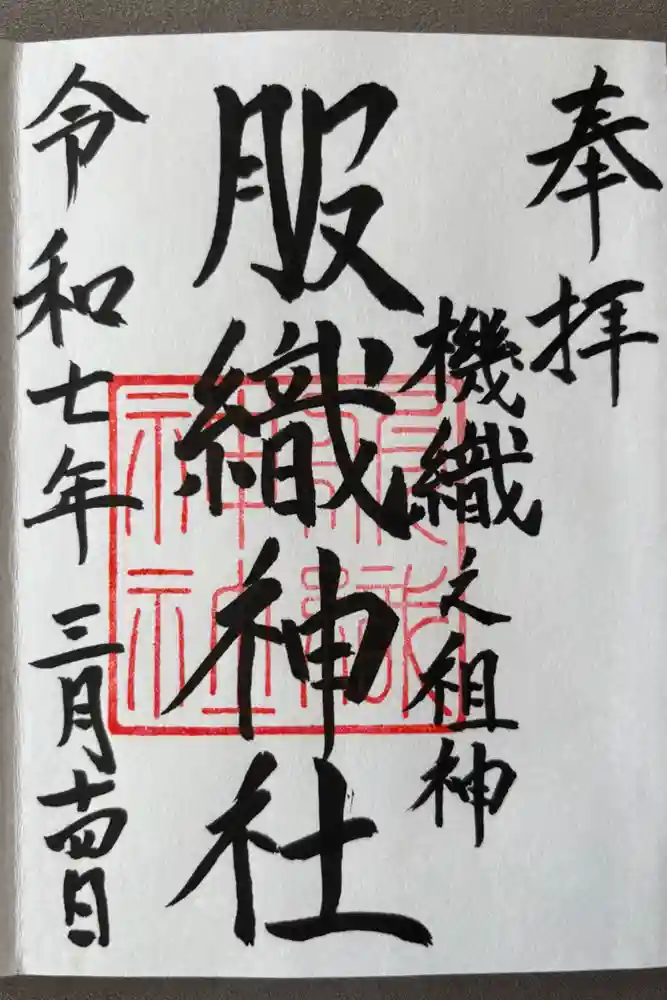 奉拝
機織之祖神
服織神社
服織神社
令和七年三月十四日